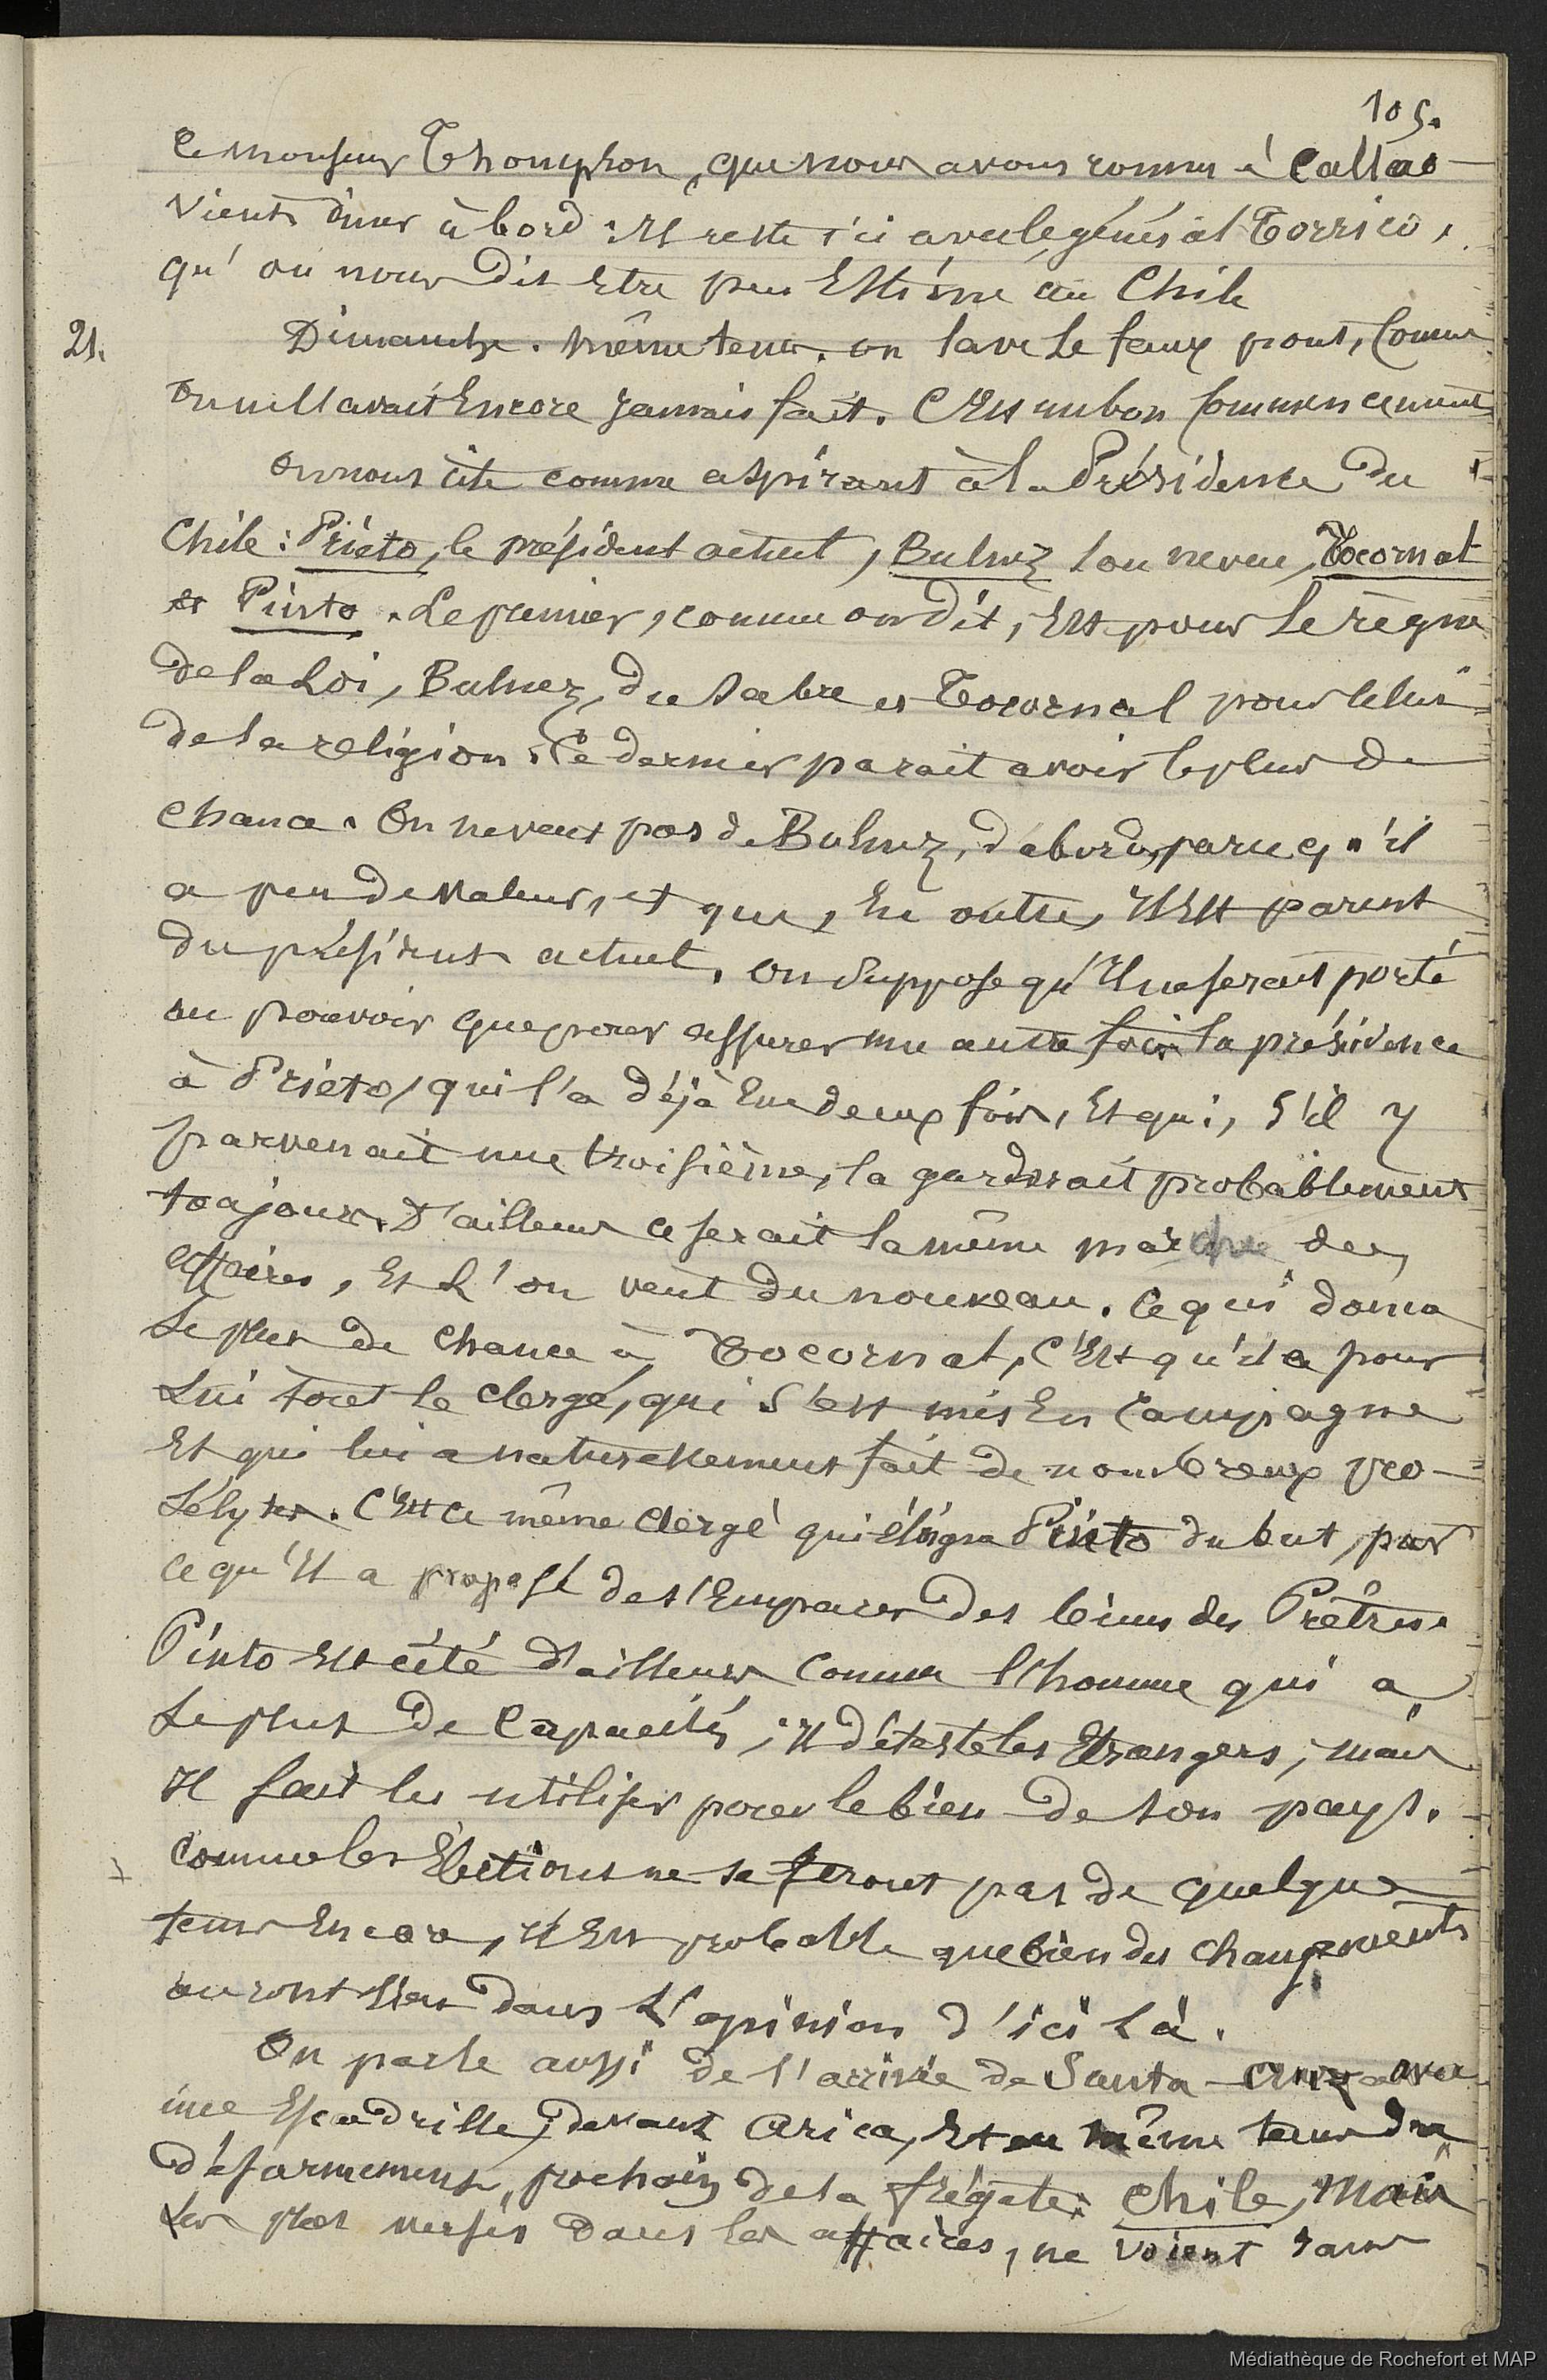 105.
Ce monsieur Thompson, que nous avons connu à Callao
vient dîner à bord : Il reste ici avec le général Torrico,
qu'on nous dit Etre peu Estimé au Chile
21. Dimanche. Même tems. on lave le faux pont, comme
on ne l'avait Encore jamais fait. C'Est un bon commencement
on nous cite comme aspirant à la Présidence du
Chile : Prieto, le président actuel, Bulnez son neveu, Tocornal
et Pinto. Le premier, comme on dit, Est pour le règne
de la Loi, Bulnez, du sabre et Tocornal pour celui
de la religion. Ce dernier parait avoir le plus de
chance. On ne veut pas de Bulnez, d'abord, parce qu'il
a peu de valeur, et que, En outre, Il Est parent
du président actuel. on suppose qu'Il ne serait porté
au pouvoir que pour assurer une autre fois la présidence
à Prieto, qui l'a déjà Eue deux fois, Et qui, s'il y
parvenait une troisième, la garderait probablement
toujours. D'ailleurs ce serait la même marche des
affaires, Et L'on veut du nouveau. Ce qui donne
Le plus de chance à Tocornal, C'Est qu'il a pour
Lui tout le clergé, qui s'est mis En campagne
Et qui lui a naturellement fait de nombreux pro-
sélytes. C'Est ce même clergé qui éloigna Pinto du but, par
ce qu'Il a proposé de s'Emparer des biens des Prêtres.
Pinto Est cité d'ailleurs comme l'homme qui a
Le plus de capacités ; Il déteste les Etrangers, mais
Il sait les utiliser pour le bien de son pays.
Comme les Elections ne se feront pas de quelque
tems Encore, Il Est probable que bien des changements
auront lieu dans L'opinion d'ici Là.
On parle aussi de l'arrivée de Santa-Cruz avec
une Escadrille, devant Arica, Et en même tems du
désarmement prochain de la frégate Chile, Mais
Les plus versés dans les affaires, ne voient dans
Médiathèque de Rochefort et MAP